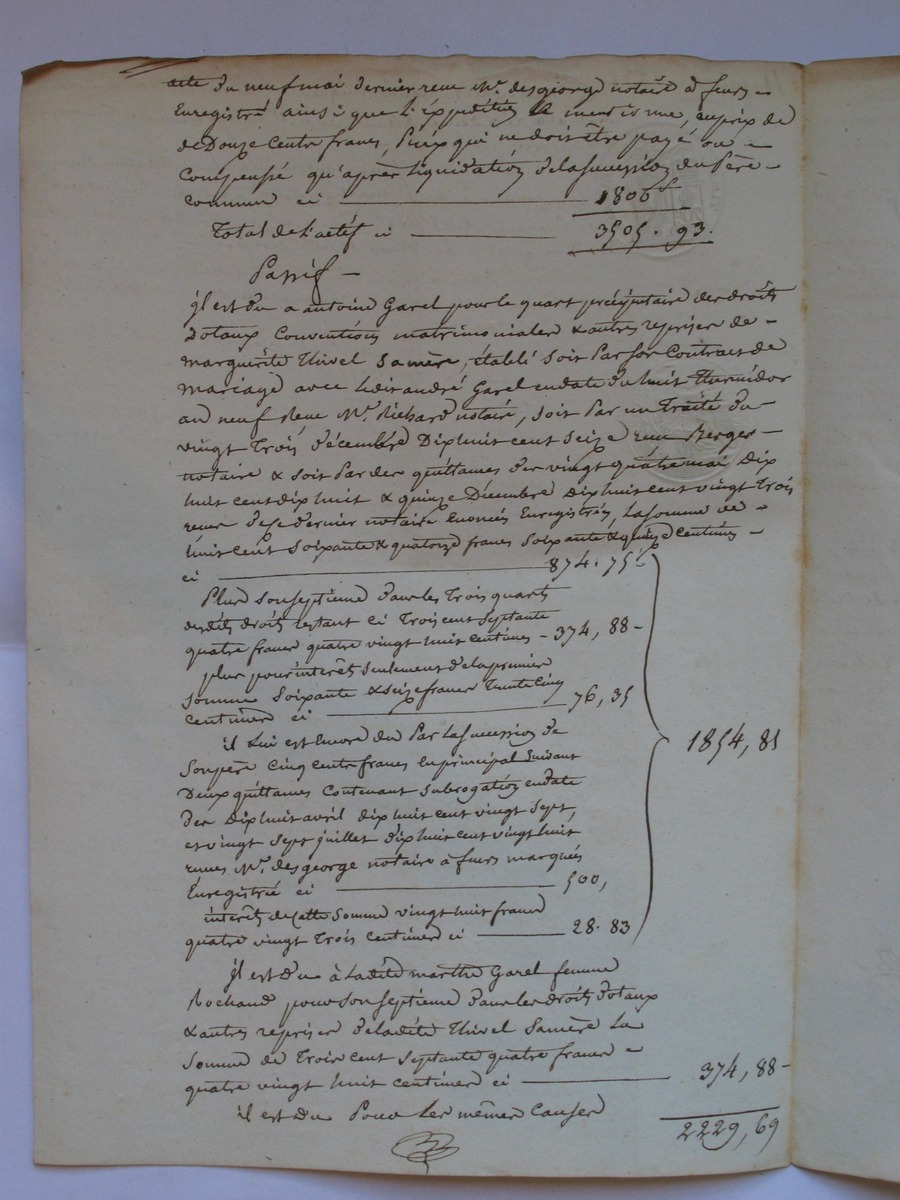 acte du neuf mai dernier reçu Mr. desgeorge notaire à feurs
Enregistré ainsi que l'Expédition a mentionné, au prix de
de Douze Cents francs, Prix qui ne doit être payé ou
Compensé qu'après liquidation de la succession du Père
Commun ci 1800f
Total de l'actif ci 3505. 93.
Passif
il est du a antoine Garel pour le quart préciputaire des droits
Dotaux Conventions matrimoniales & autres reprises de
marguerite Thivel sa mère, établi soit Par son Contrat de
mariage avec ledit andré Garel en date du huit thermidor
an neuf Reçu Mr. Richard notaire, soit Par un Traité du
vingt Trois décembre Dix huit cent seize reçu Berger
notaire & soit Par des quittances des vingt quatre mai Dix
huit cent dix huit & quinze Décembre Dix huit cent vingt Trois
reçues de ce dernier notaire Enregistrées, la somme de
huit cent soixante & quatorze francs soixante & quinze centimes
ci 874. 75c
Plus son septieme dans les Trois quarts
desdits droits restant ci Trois cent septante
quatre francs quatre vingt huit centimes - 374, 88 -
plus pour intérêts seulement de la premier
somme soixante & seize francs Trente Cinq
Centimes ci 76, 35
il Lui est Encore du Par la succession de
son père Cinq cents francs en principal suivant
Deux quittances Contenant subrogation en date
des Dix huit avril dix huit cent vingt sept,
et vingt sept juillet dix huit cent vingt huit
reçues Mr. desgeorge notaire à feurs
Enregistrée ci 500,
intérêts de Cette Somme vingt huit francs
quatre vingt Trois Centimes ci 28. 83
1854, 81
il est du à Ladite marthe Garel femme
Rochaud pour son septieme dans les droits dotaux
& autres reprises de ladite Thivel sa mère La
Somme de Trois cent septante quatre francs
quatre vingt huit centimes ci 374, 88 -
il est du Pour les mêmes Causes
2229, 69